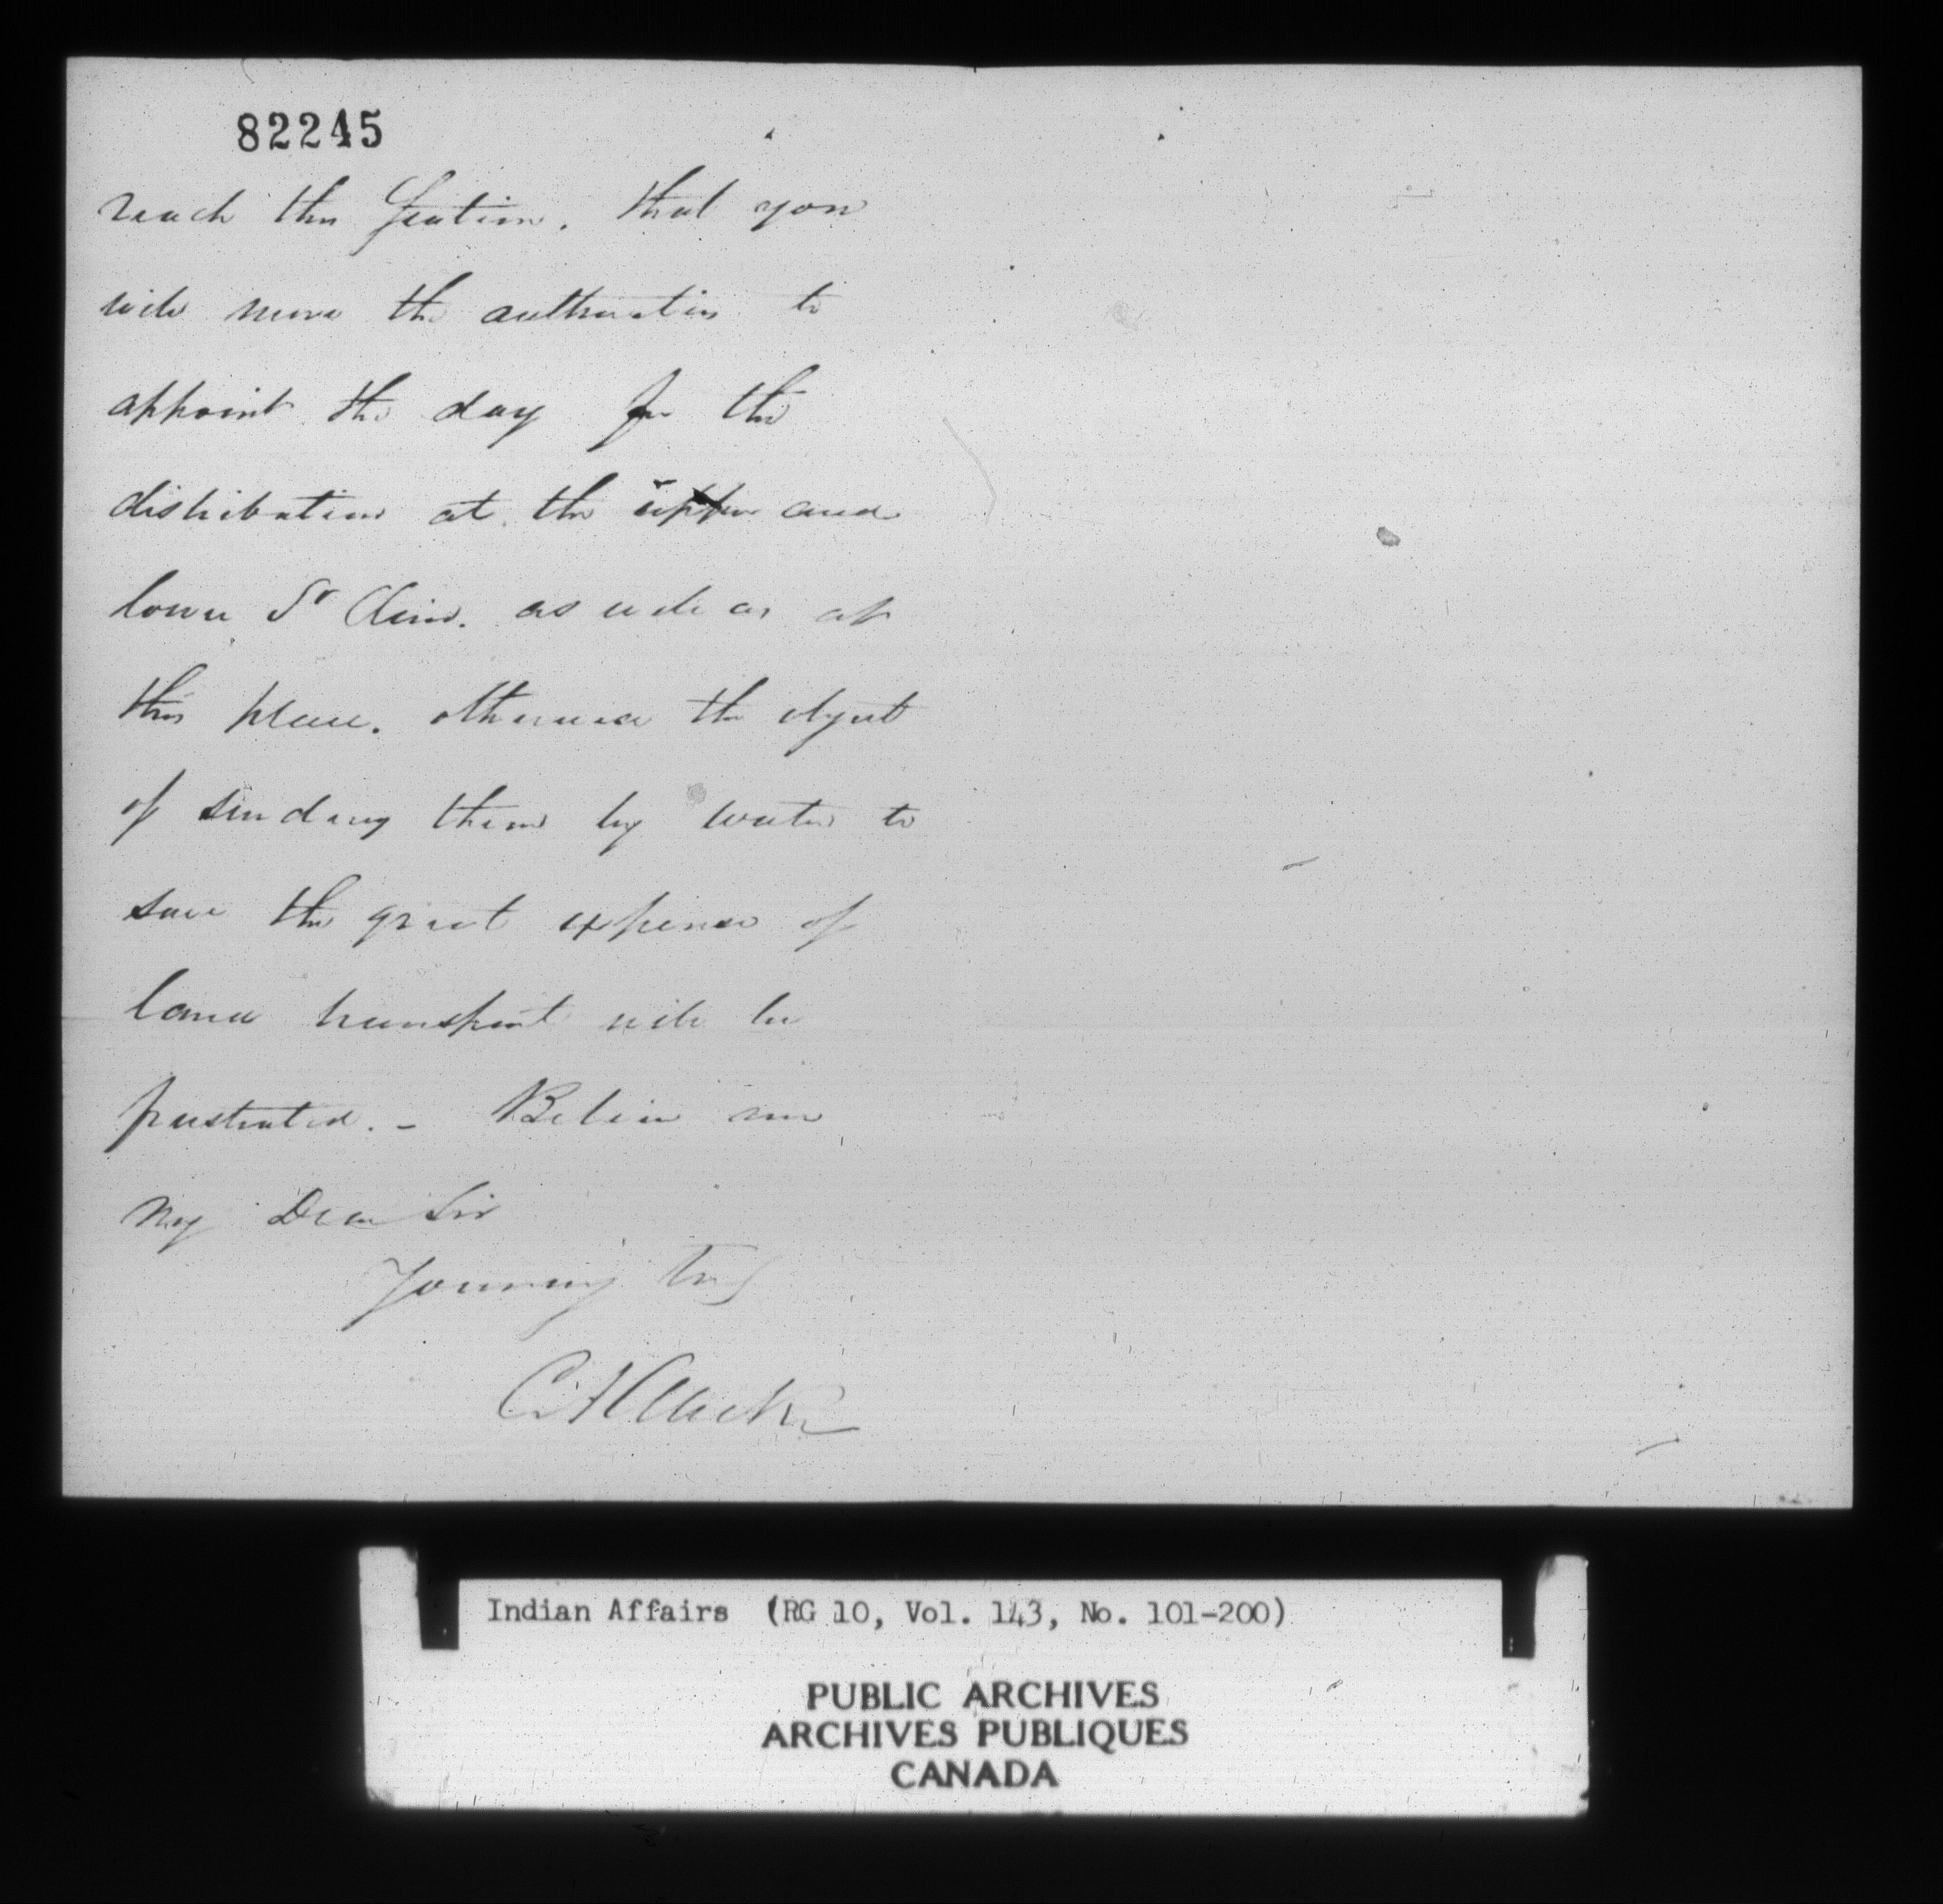 82245
reach this Station, that you
will move the authorities to
appoint the day for the
distribution at the upper and
lower St Clair. as well as at
this place. otherwise the object
of sending them by water to
save the great expense of
land transport will be
frustrated. - Believe me
My Dear Sir
Yours very
Indian Affairs (RG 10, Vol. 143, No. 101-200)
PUBLIC ARCHIVES
ARCHIVES PUBLIQUES
CANADA